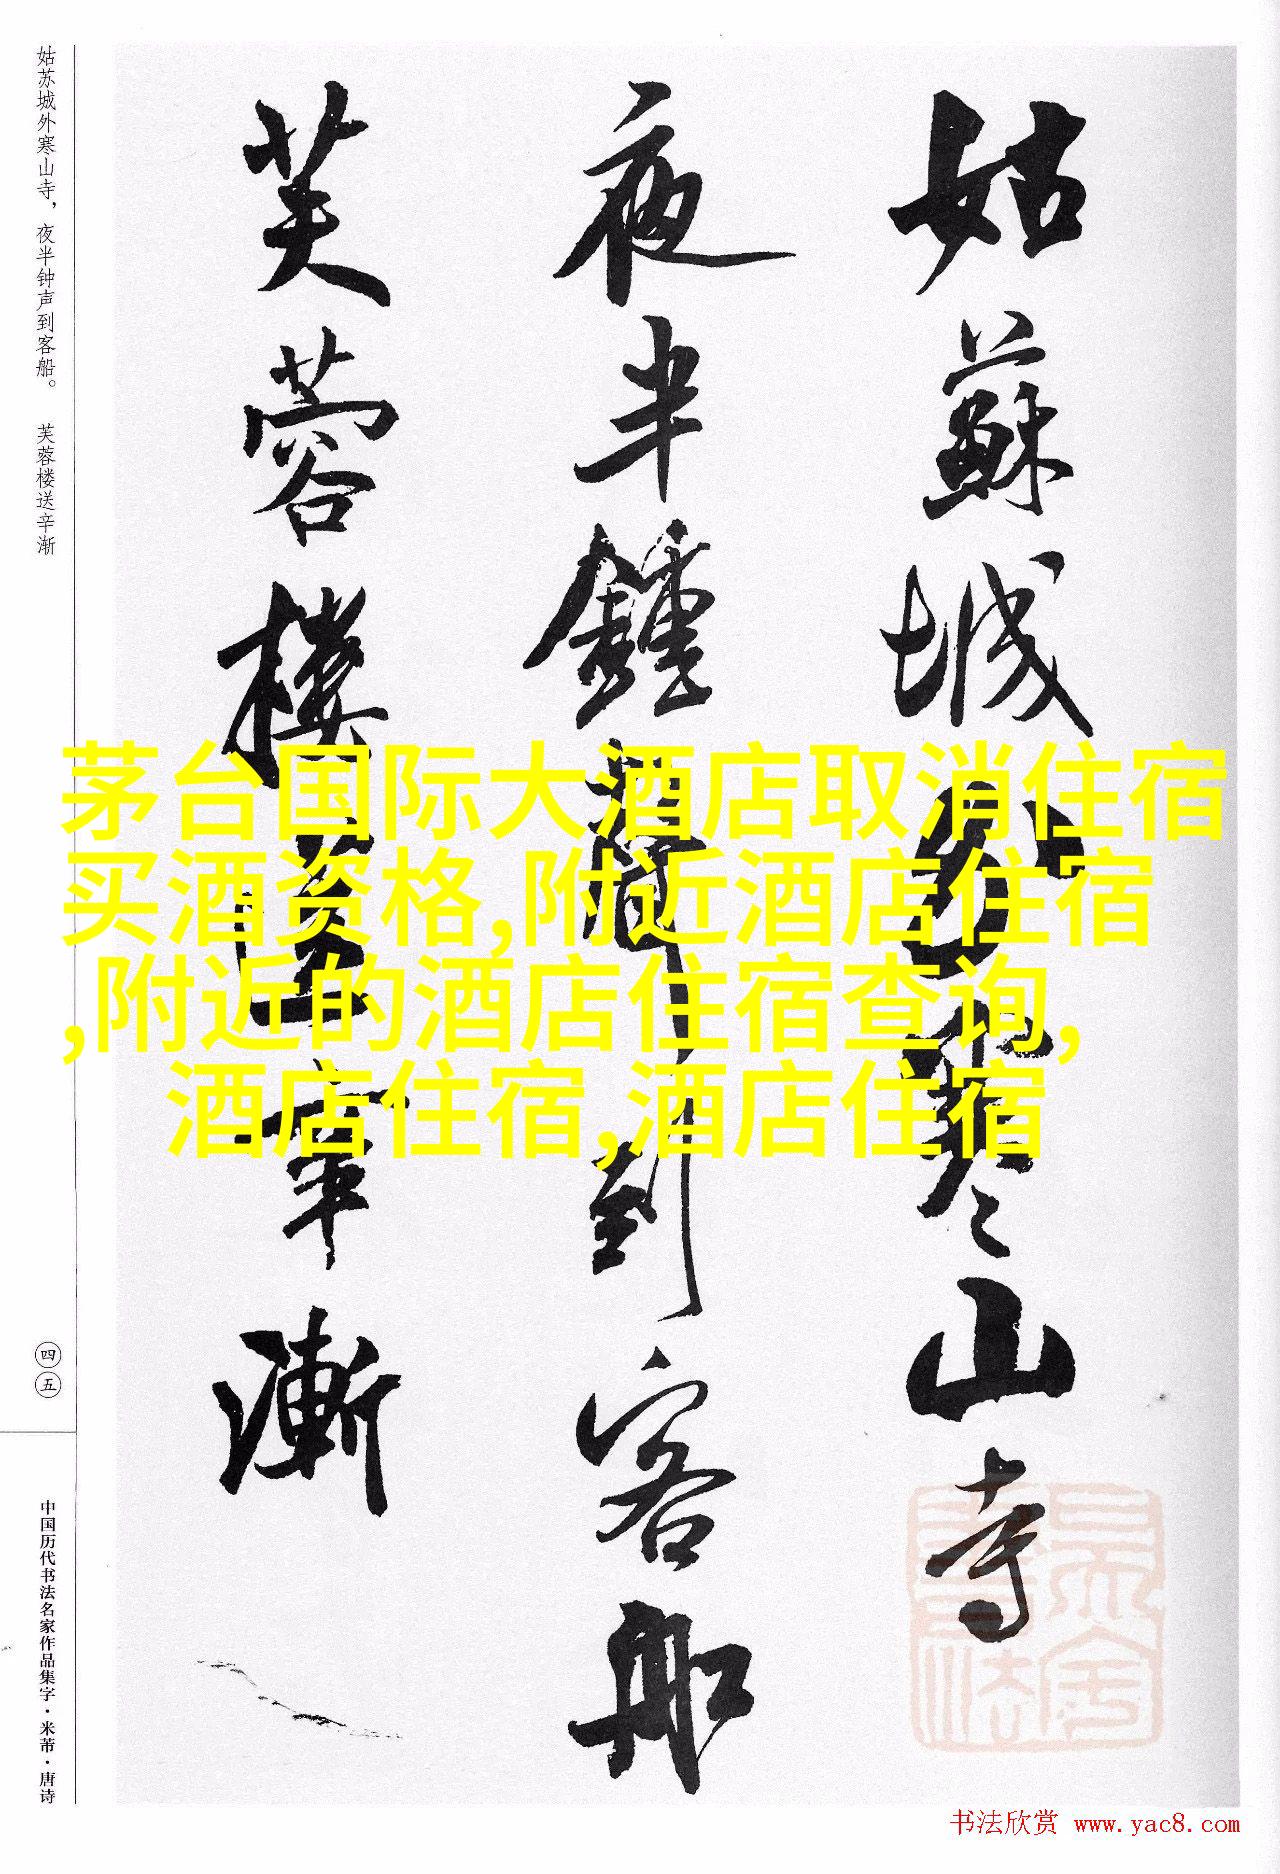 姑苏城外寒山寺，夜半钟声到客船。 芙蓉楼送辛渐
姑蘇城外寒山寺
夜半鍾聲到客船
芙蓉樓送辛漸
茅台国际大酒店取消住宿
买酒资格,附近酒店住宿
,附近的酒店住宿查询,
酒店住宿,酒店住宿
四五
中国历代书法名家作品集字·米芾·唐诗
书法欣赏 www.yac8.com